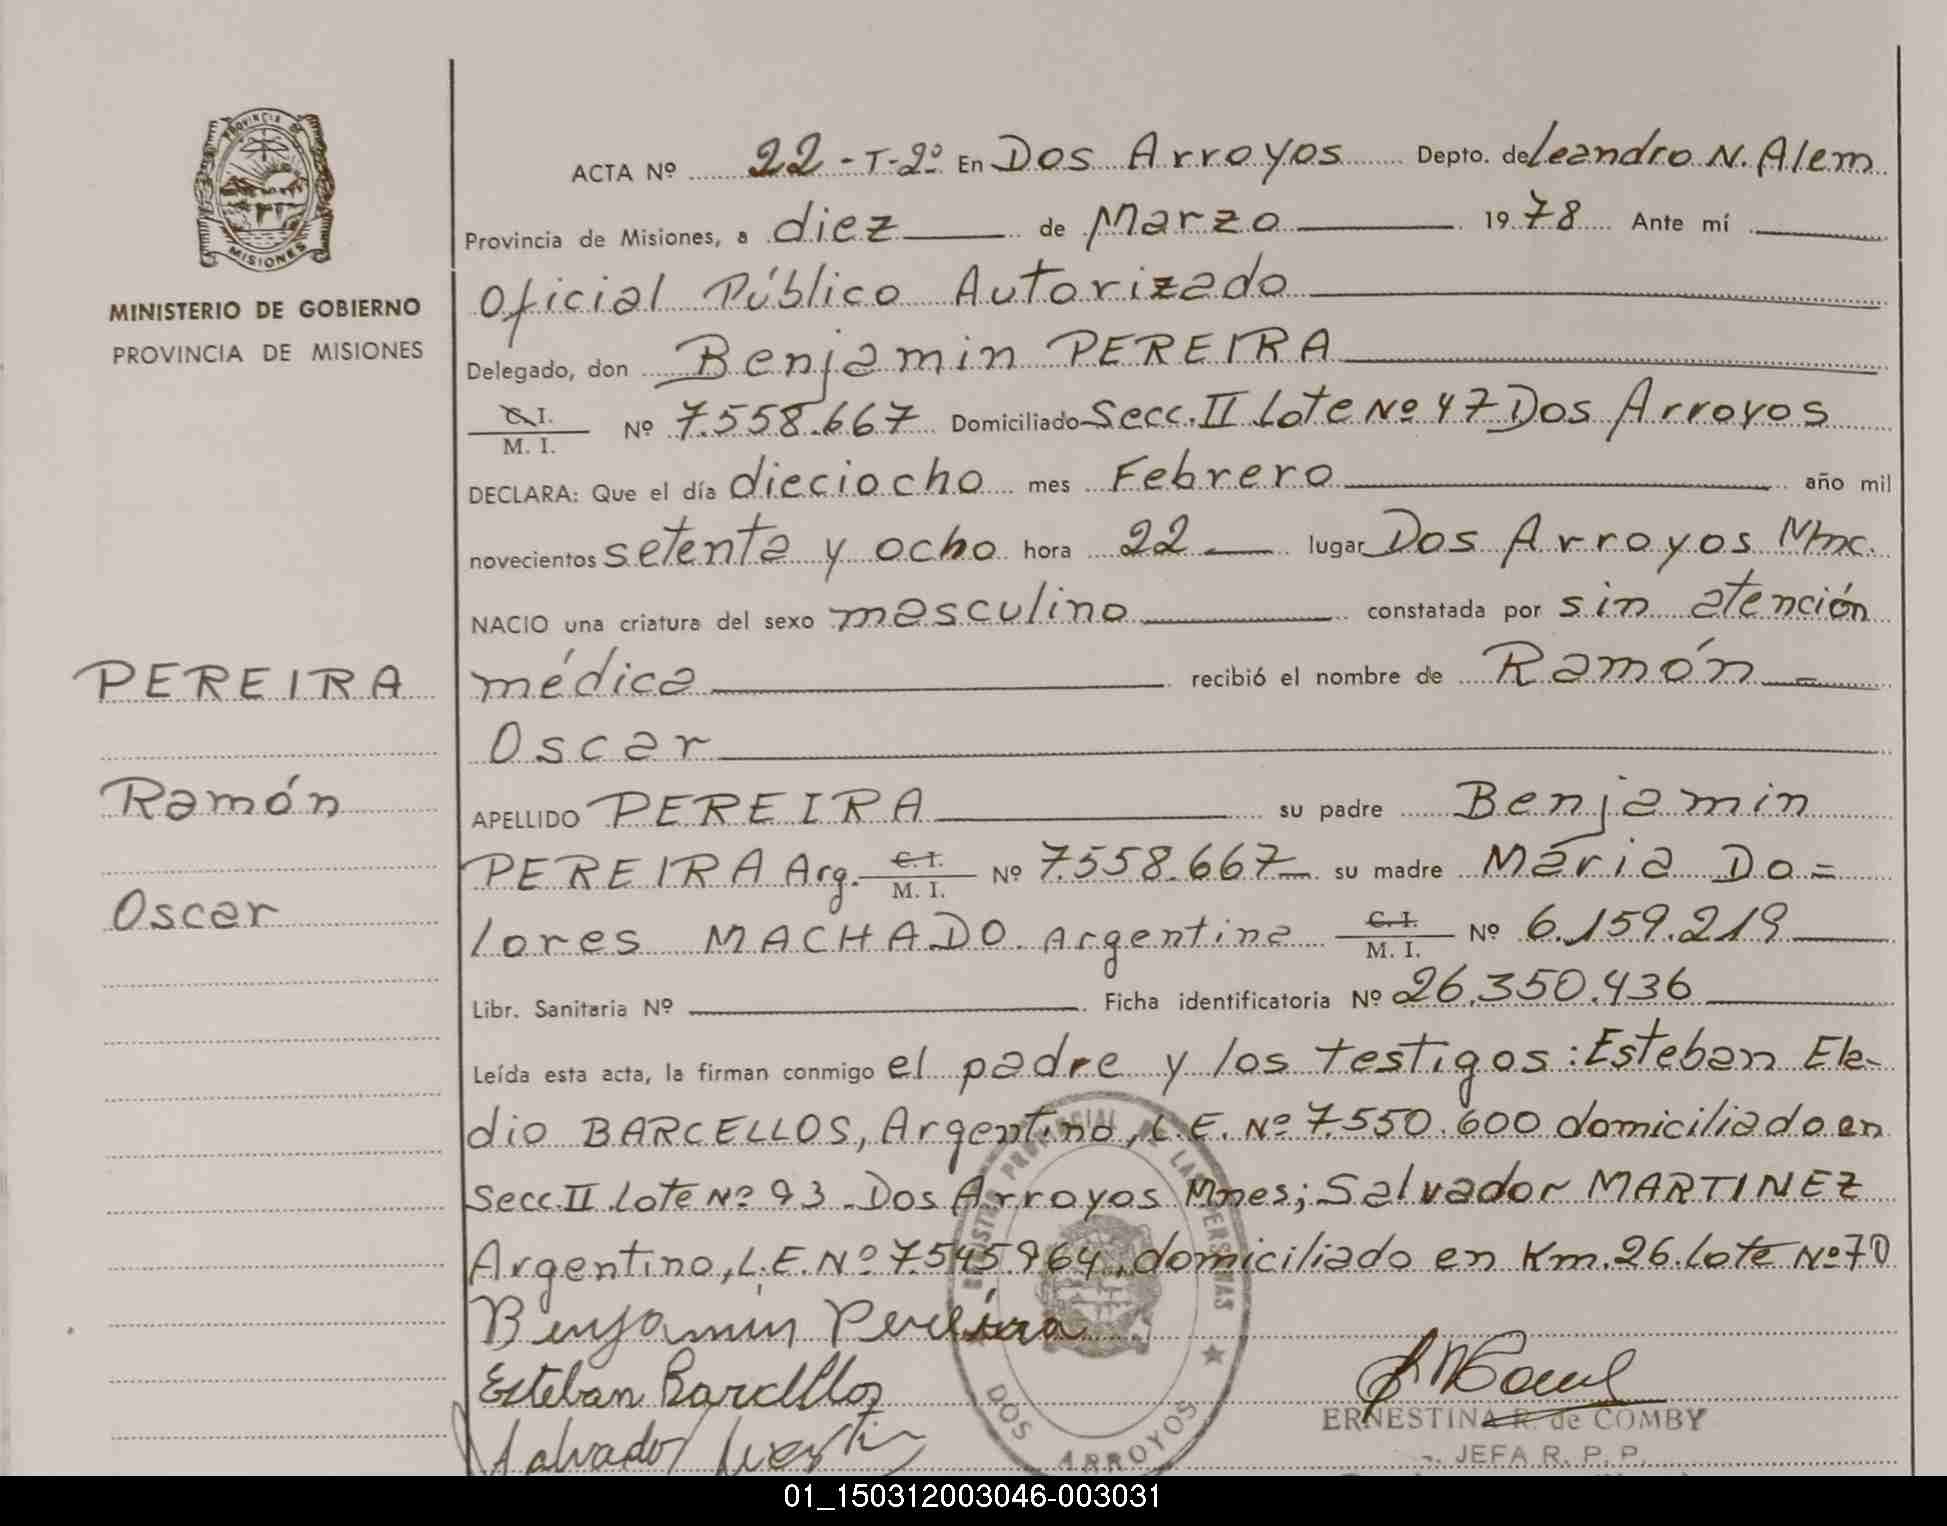 PROVINCIA DE
MISIONES
MINISTERIO DE GOBIERNO
PROVINCIA DE MISIONES
PEREIRA
Ramón
Oscar
ACTA Nº 22-T-2º En Dos Arroyos Depto. de Leandro N. Alem
Provincia de Misiones, a diez de Marzo 1978 Ante mí
Oficial Público Autorizado
Delegado, don Benjamin PEREIRA
C.I. / M. I. Nº 7.558.667 Domiciliado Secc. II Lote Nº 47 Dos Arroyos
DECLARA: Que el día dieciocho mes Febrero año mil
novecientos setenta y ocho hora 22 lugar Dos Arroyos
NACIO una criatura del sexo masculino constatada por sin atención
médica recibió el nombre de Ramón
Oscar
APELLIDO PEREIRA su padre Benjamin
PEREIRA Arg. C.I. / M. I. Nº 7.558.667 su madre María Do=
lores MACHADO Argentina C.I. / M. I. Nº 6.159.219
Libr. Sanitaria Nº Ficha identificatoria Nº 26.350.436
Leída esta acta, la firman conmigo el padre y los testigos: Esteban Ela-
dio BARCELLOS, Argentino, L.E. Nº 7.550.600 domiciliado en
Secc. II Lote Nº 93 Dos Arroyos Mnes; Salvador MARTINEZ
Argentino, L.E. Nº 7.545.964, domiciliado en Km. 26 Lote Nº 70
Benjamin Pereira
Esteban Barcellos
Salvador
REGISTRO PROVINCIAL DE LAS PERSONAS
DOS ARROYOS
ERNESTINA R. de COMBY
JEFA R. P. P.
01_150312003046-003031